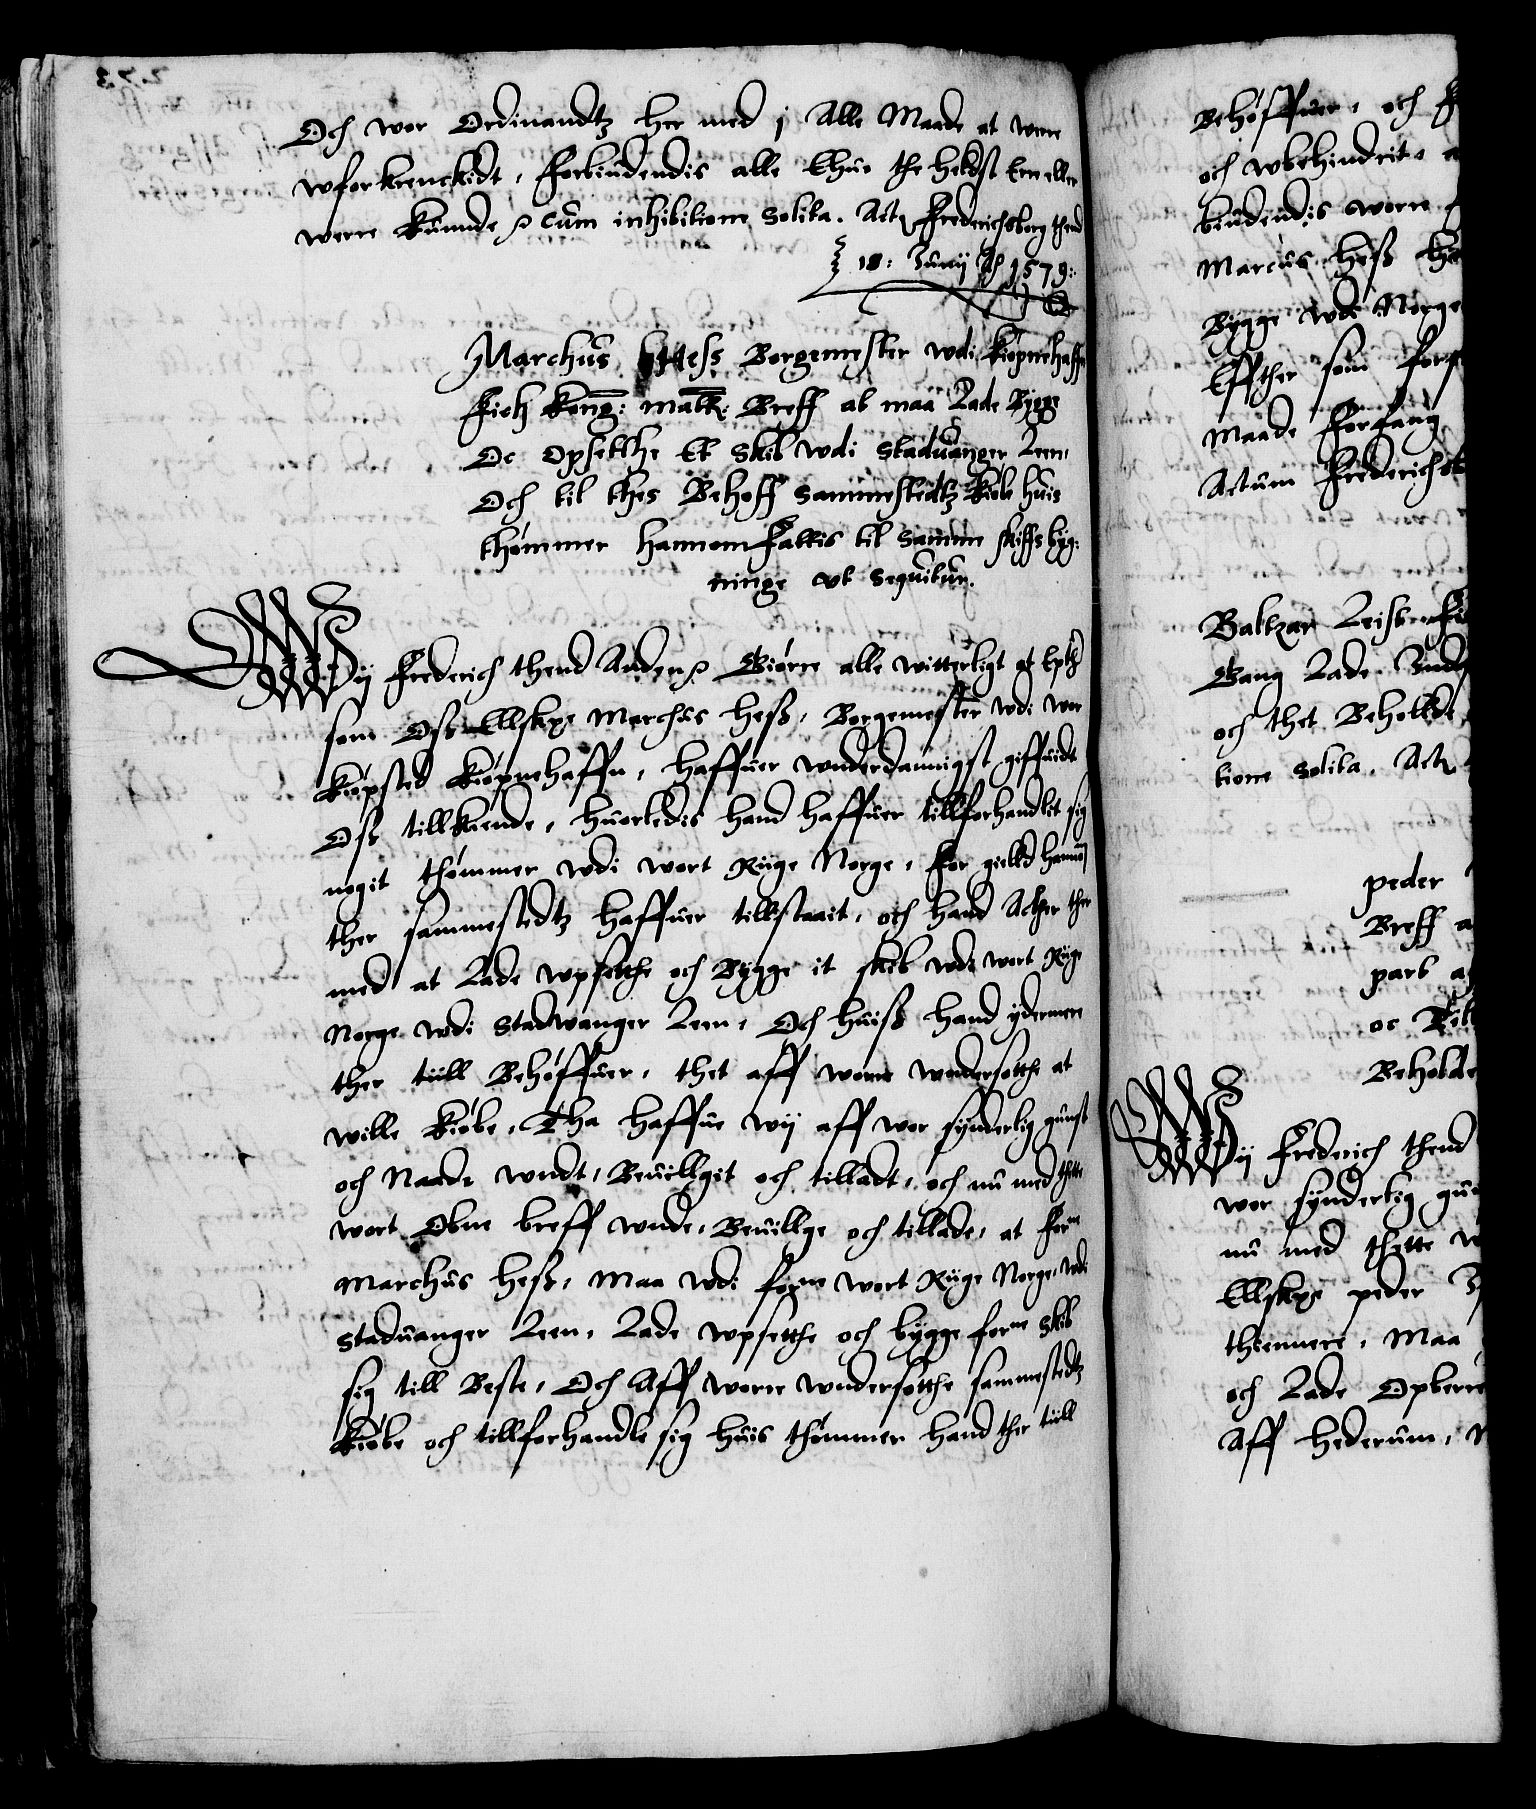 Och wor Ordinandtz her med j Alle Maade at were
wforkrenckidt, Forbiudendis alle Ehuo the helst Ere eller
were kunde cum inhibitione solita. Act Frederichsborg thend
18: Junij Ao 1579:
Marchus Hess Borgemester wdi Kiøpnehaffn
fich Kong: Matt: Breff at maa Lade Bygge
Oc Opsetthe Et Skib wdi Staduanger Leen,
Och til thes Behoff sammestedtz Kiøbe huis
thømmer hannom Fattis til samme skiffs byg:
ninge vt sequitur.
Wij Frederich thend Anden Giøre alle witterligt at Epth
som Oss Elskpe Marchus Hess, Borgemester wdi wor
Kiøpsted Kiøpnehaffn, haffuer wnderdannigst giffuidt
Oss tillkiende, huorledis hand haffuer tillforhandlit sig
nogit thømmer wdi wort Riige Norge, for gield hannom
ther sammestedtz haffuer tillstaait, och hand Acther ther
med at Lade wpsetthe och Bygge it skib wdi wort Riige
Norge wdi Stadwanger Leen, Och huiss hand ydermere
ther tiill Behøffuer, thet aff wore wndersotthe at
wille Kiøbe, Tha haffue wij aff wor synderlig gunst
och Naade wndt, Beuillgit och tilladt, och nu med thette
wort Obne breff wnde, Beuillge och tillade, at forne
Marchus Hess, Maa wdi forne wort Riige Norge, wdi
Staduanger Leen, Lade wpsetthe och bygge forne Skib
sig till Beste, Och Aff wore wndersotthe sammestedtz
Kiøbe och tillforhandle sig huis thømmer hand ther tiill
Behøffuer, och
och wbehindrit,
biudendis worre
Marcus Hess
Bygge wdi Norge
Effther som
Maade Forfang
Actum Frederichsb
Baltzar
Gang Lade
och thet Beholde
tione solita. Act
peder
Breff
part
oc
Beholde
Wij Frederich thend
wor synderlig gu
nu med thette w
Elskpe peder
thiennere, Maa
och Lade Opberre
Aff hederum,